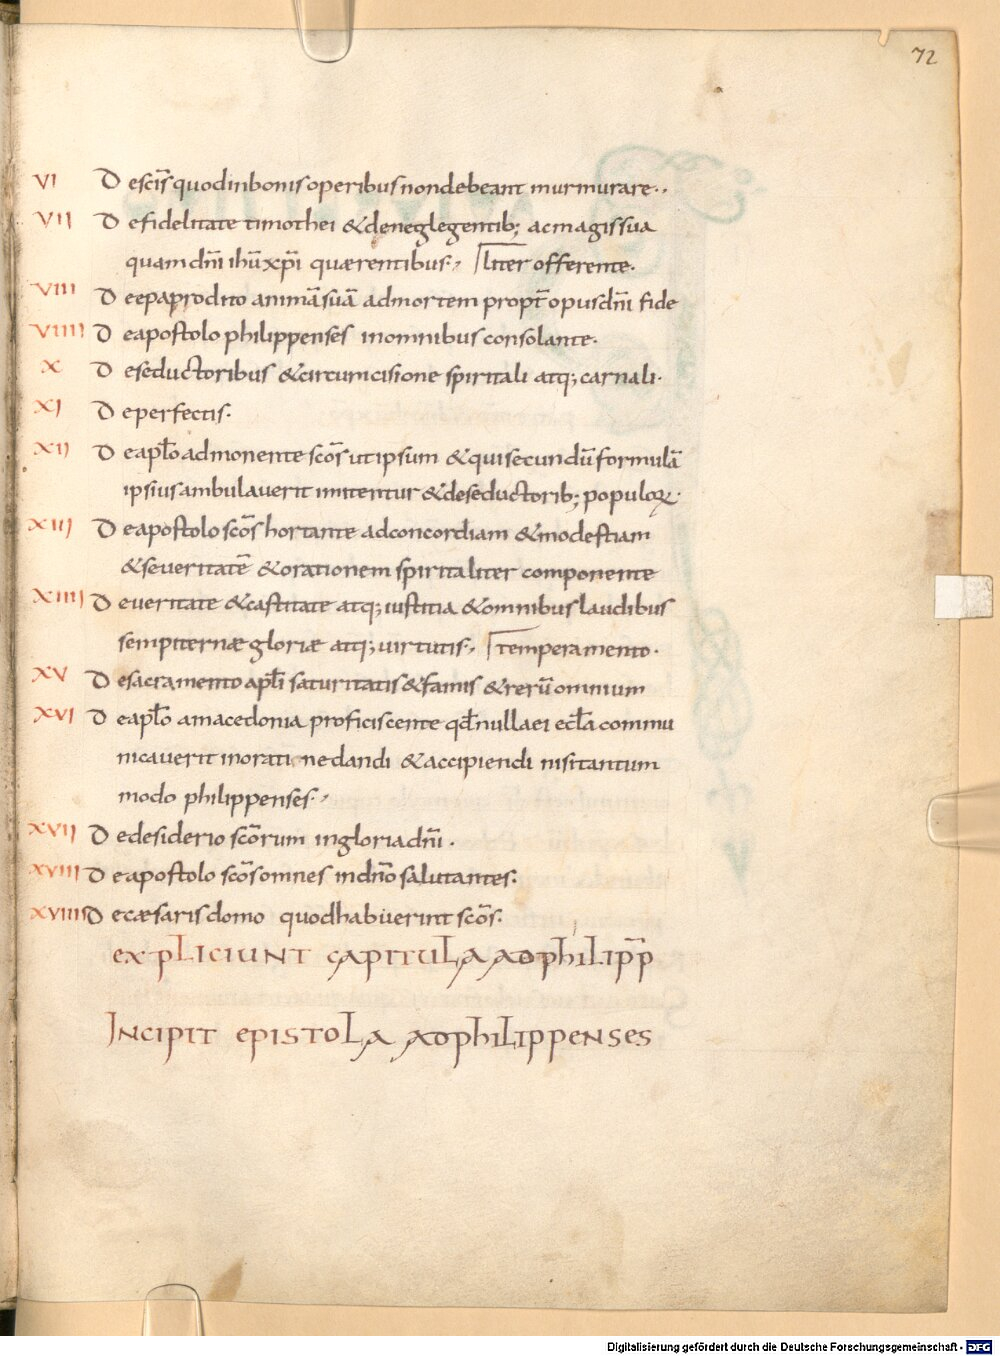 72
VI De scīs quod in bonis operibus non debeant murmurare.,
VII De fidelitate timothei & de neglegentib; ac magis sua
quam dn̄i ihū xp̄i quærentibus., liter offerente.
VIII De epaprodito animā suā ad mortem propt̄ opus dn̄i fide
VIIII De apostolo philippenses in omnibus consolante.
X De seductoribus & circumcisione spiritali atq; carnali.
XI De perfectis.
XII De apl̄o admonente scōs ut ipsum & qui secundū formulā
ipsius ambulaverit imitentur & de seductorib; populoꝝ.
XIII De apostolo scōs hortante ad concordiam & modestiam
& severitatē & orationem spiritaliter componente
XIIII De veritate & castitate atq; iustitia & omnibus laudibus
sempiternæ gloriæ atq; virtutis., Temperamento.
XV De sacramento apl̄i saturitatis & famis & rerū omnium
XVI De apl̄o a macedonia proficiscente qd̄ nulla ei eccl̄a commu
nicaverit in oratione dandi & accipiendi nisi tantum
modo philippenses.,
XVII De desiderio scōrum in gloria dn̄i.
XVIII De apostolo scōs omnes in dn̄o salutantes.
XVIIII De cæsaris domo quod habuerint scōs.
EXPLICIUNT CAPITULA AD PHILIPP̄
INCIPIT EPISTOLA AD PHILIPPENSES
Digitalisierung gefördert durch die Deutsche Forschungsgemeinschaft - DFG